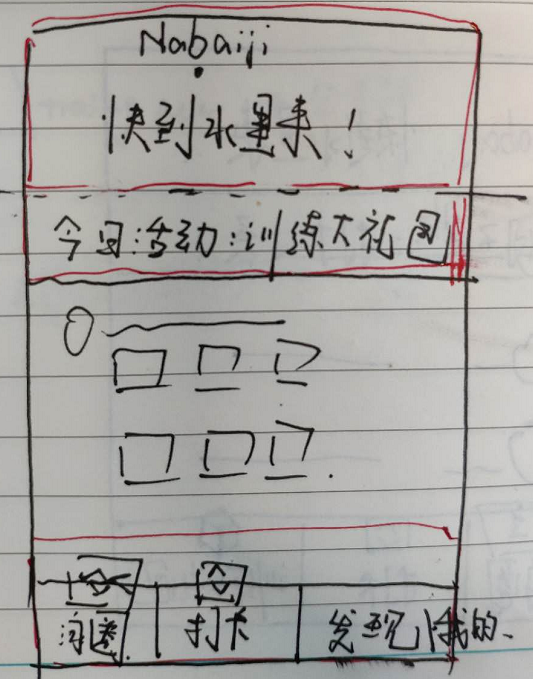 Nabaiji
快到水里来！
今日活动：训练大礼包
泳圈 打卡 发现 我的